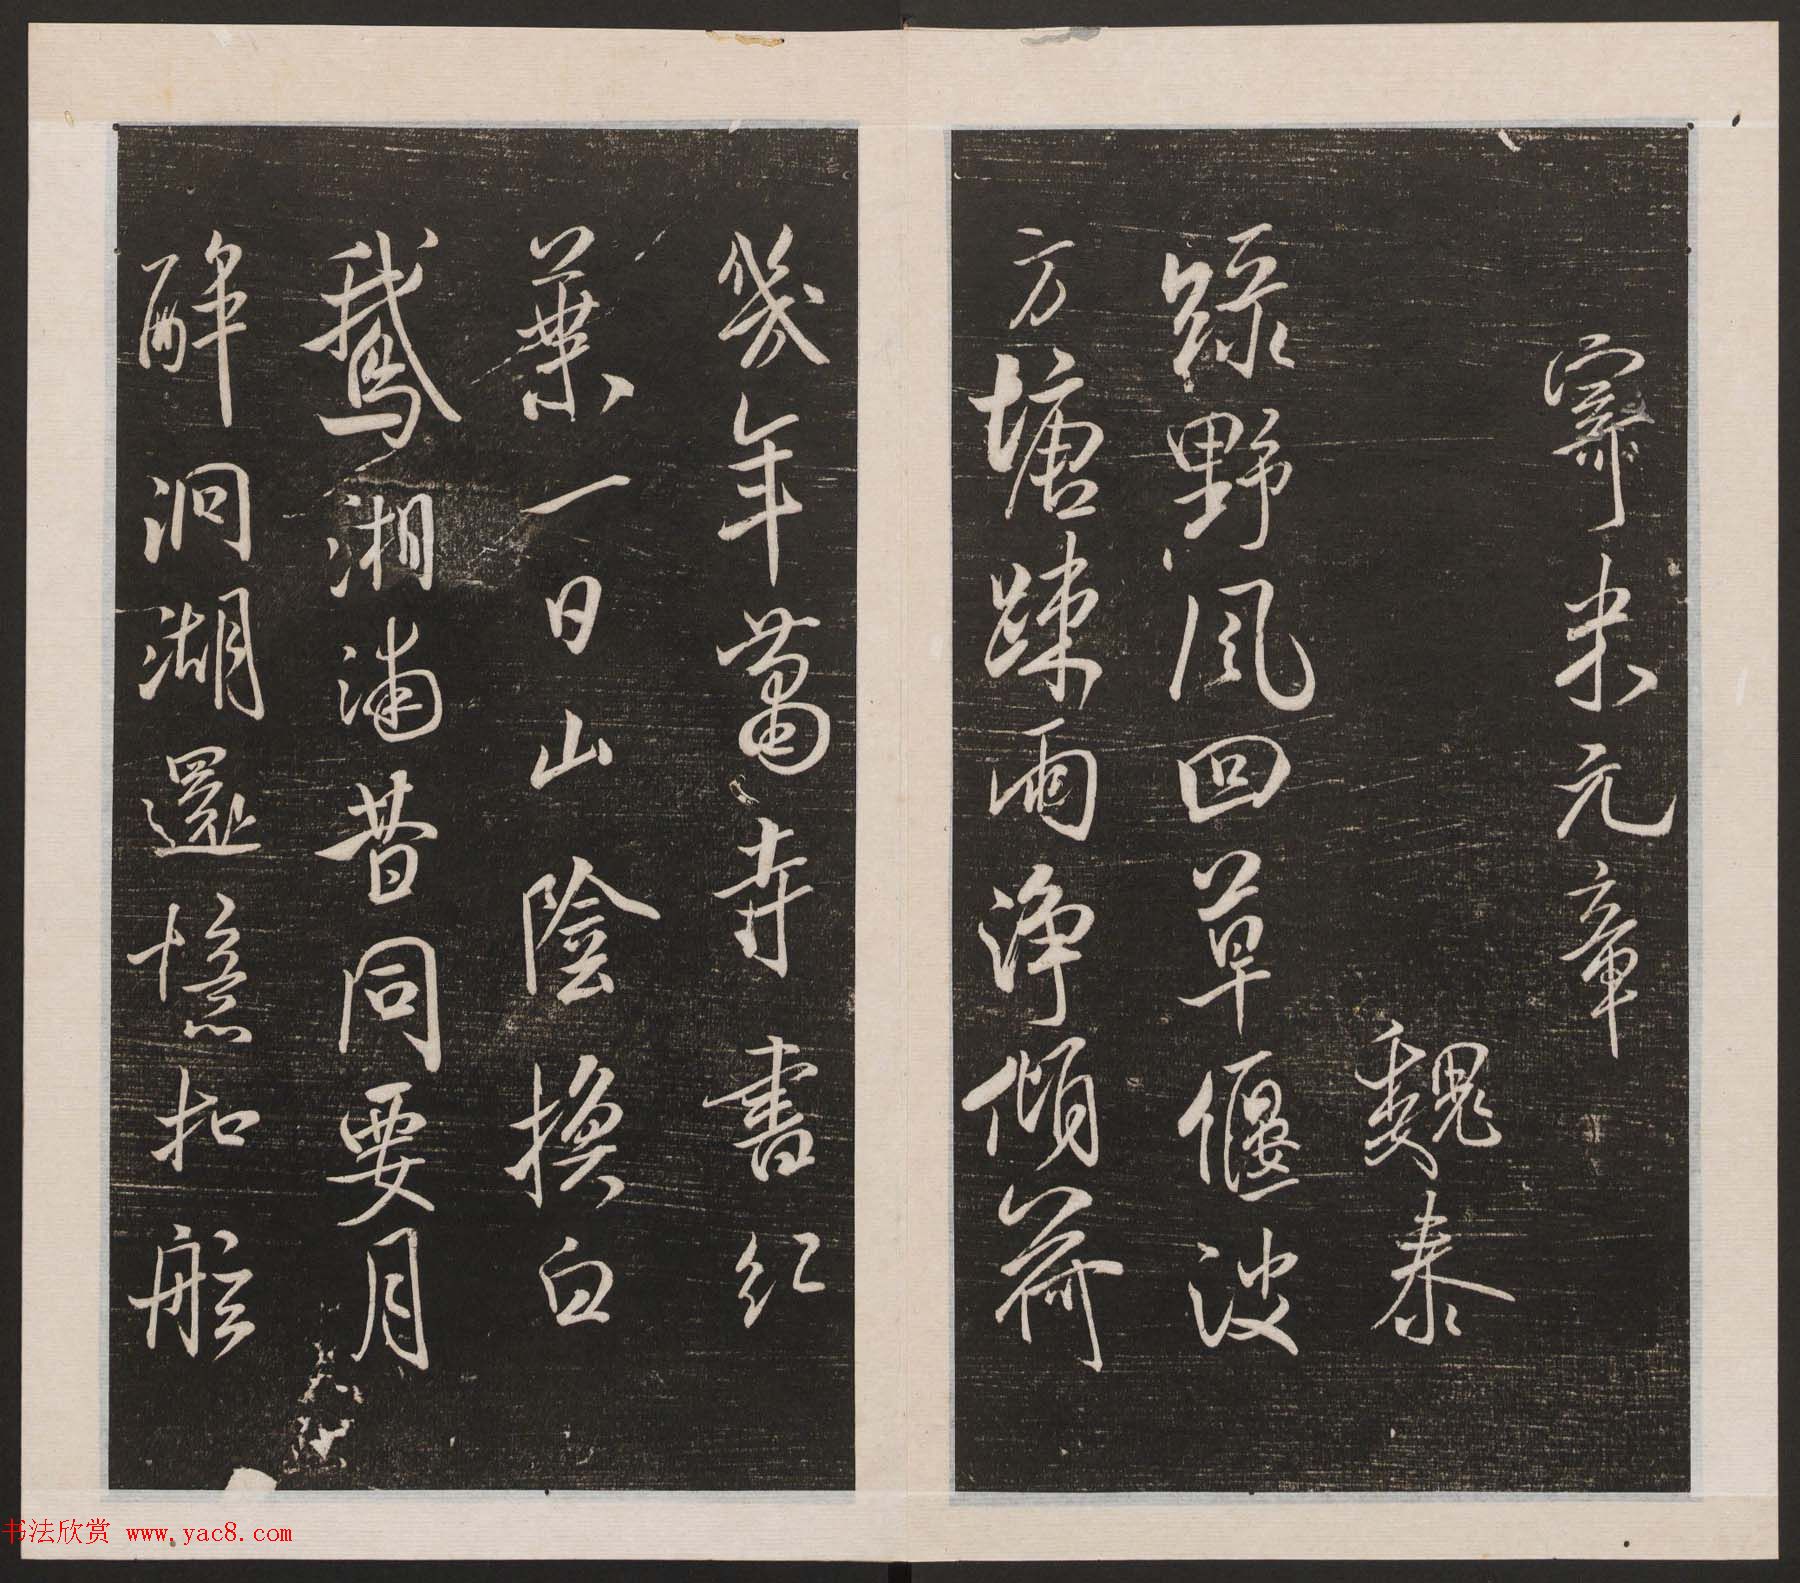 寄米元章
魏泰
綠野風回草偃波
方塘疎雨淨傾荷
幾年蕭寺書紅
葉一日山陰換白
鵝湘浦昔同要月
醉洞湖還憶扣舷
书法欣赏 www.yac8.com